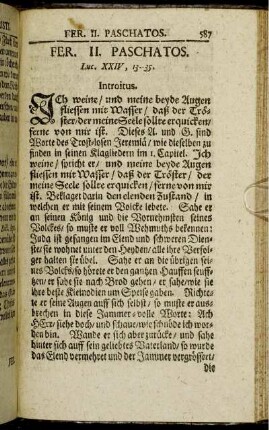 FER. II. PASCHATOS. 587
FER. II. PASCHATOS.
Luc. XXIV, 13-35.
Introitus.
Ich weine/ und meine beyde Augen
fliessen mit Wasser/ daß der Trö-
ster/ der meine Seele sollte erquicken/
ferne von mir ist. Dieses A. und G. sind
Worte des Trost-losen Jeremiä/ wie dieselben zu
finden in seinen Klagliedern im 1. Capitel. Ich
weine/ spricht er/ und meine beyde Augen
fliessen mit Wasser/ daß der Tröster/ der
meine Seele sollte erquicken/ ferne von mir
ist. Beklaget darin den elenden Zustand/ in
welchen er mit seinen Volcke lebete. Sahe er
an seinen König und die Vornehmsten seines
Volckes/ so muste er voll Wehmuths bekennen:
Juda ist gefangen im Elend und schweren Dien-
ste/ sie wohnet unter den Heyden/ alle ihre Verfol-
ger halten sie übel. Sahe er an die übrigen sei-
nes Volcks/ so hörete er den gantzen Hauffen seuff-
zen/ er sahe sie nach Brod gehen/ er sahe/ wie sie
ihre beste Kleinodien um Speise gaben. Richte-
te er seine Augen auff sich selbst/ so muste er aus-
brechen in diese Jammer-volle Worte: Ach
HErr/ siehe doch/ und schaue/ wie schnöde ich wor-
den bin. Wande er sich aber zurücke/ und sahe
hinter sich auff sein geliebtes Vaterland/ so wurde
das Elend vermehret und der Jammer vergrössert/
die